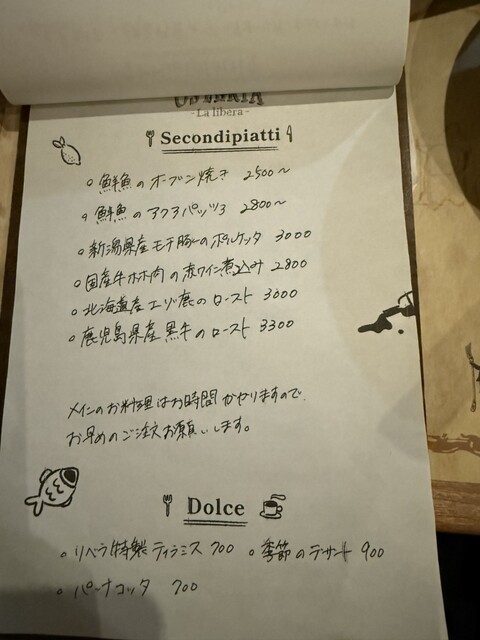 OSTERIA
- La libera -
Secondipiatti
○ 鮮魚のオーブン焼き 2500〜
○ 鮮魚のアクアパッツァ 2800〜
○ 新潟県産モチ豚のポルケッタ 3000
○ 国産牛ホホ肉の赤ワイン煮込み 2800
○ 北海道産エゾ鹿のロースト 3000
○ 鹿児島県産黒牛のロースト 3300
メインのお料理はお時間かかりますので、
お早めのご注文お願いします。
Dolce
○ リベラ特製ティラミス 700 ○ 季節のデザート 900
○ パンナコッタ 700